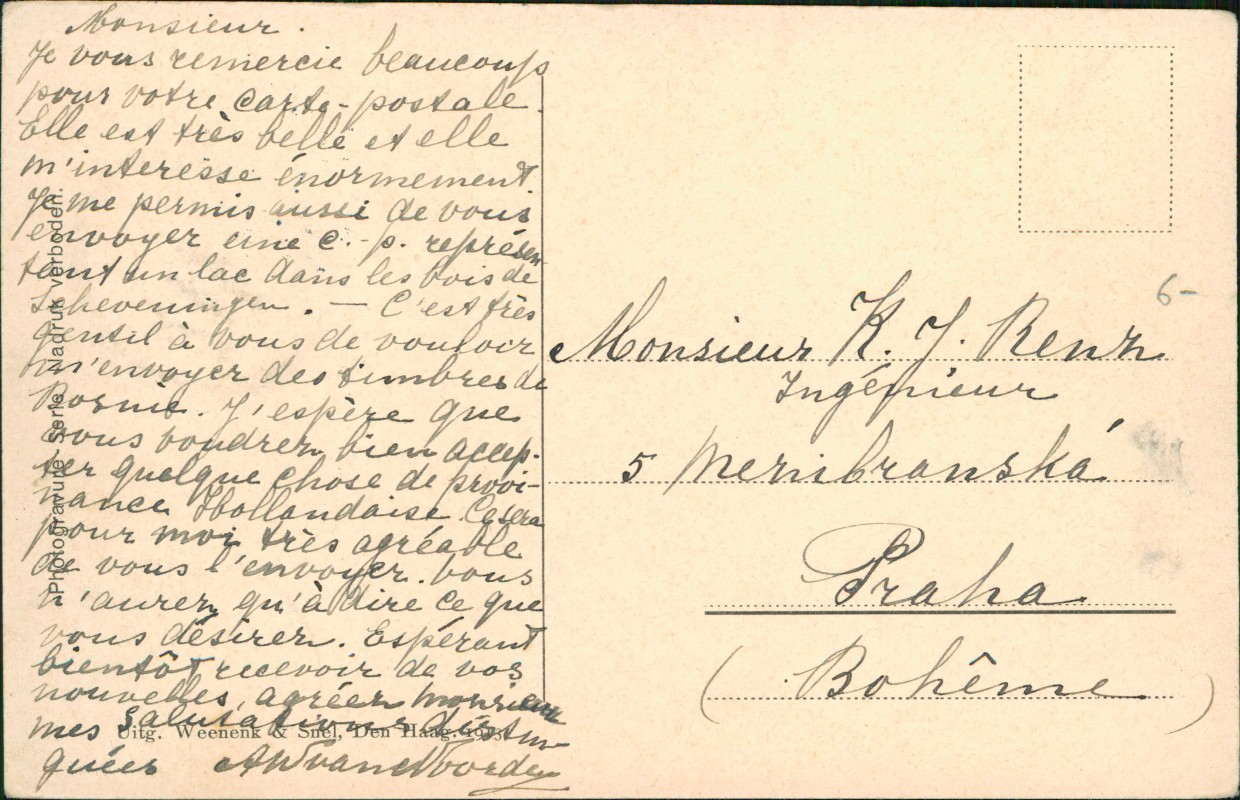 Monsieur.
Je vous remercie beaucoup
pour votre carte-postale.
Elle est très belle et elle
m'interesse énormement.
Je me permis aussi de vous
envoyer une c.-p. représen
tant un lac dans les bois de
Scheveningen. — C'est très
gentil à vous de vouloir
m'envoyer des timbres de
Bosnie. J'espère que
vous voudrez bien accep-
ter quelque chose de provi-
nance Hollandaise. Ce sera
pour moi très agréable
de vous l'envoyer. Vous
n'aurez qu'à dire ce que
vous désirez. Espérant
bientôt recevoir de vos
nouvelles, agréez monsieur
mes salutations distin
guées AW van Noorden
Photogravure Serie. Nadruk verboden.
Uitg. Weenenk & Snel, Den Haag. 1913
6-
Monsieur K. J. Renz
Ingénieur
5 Meribranská
Praha
(Bohême)